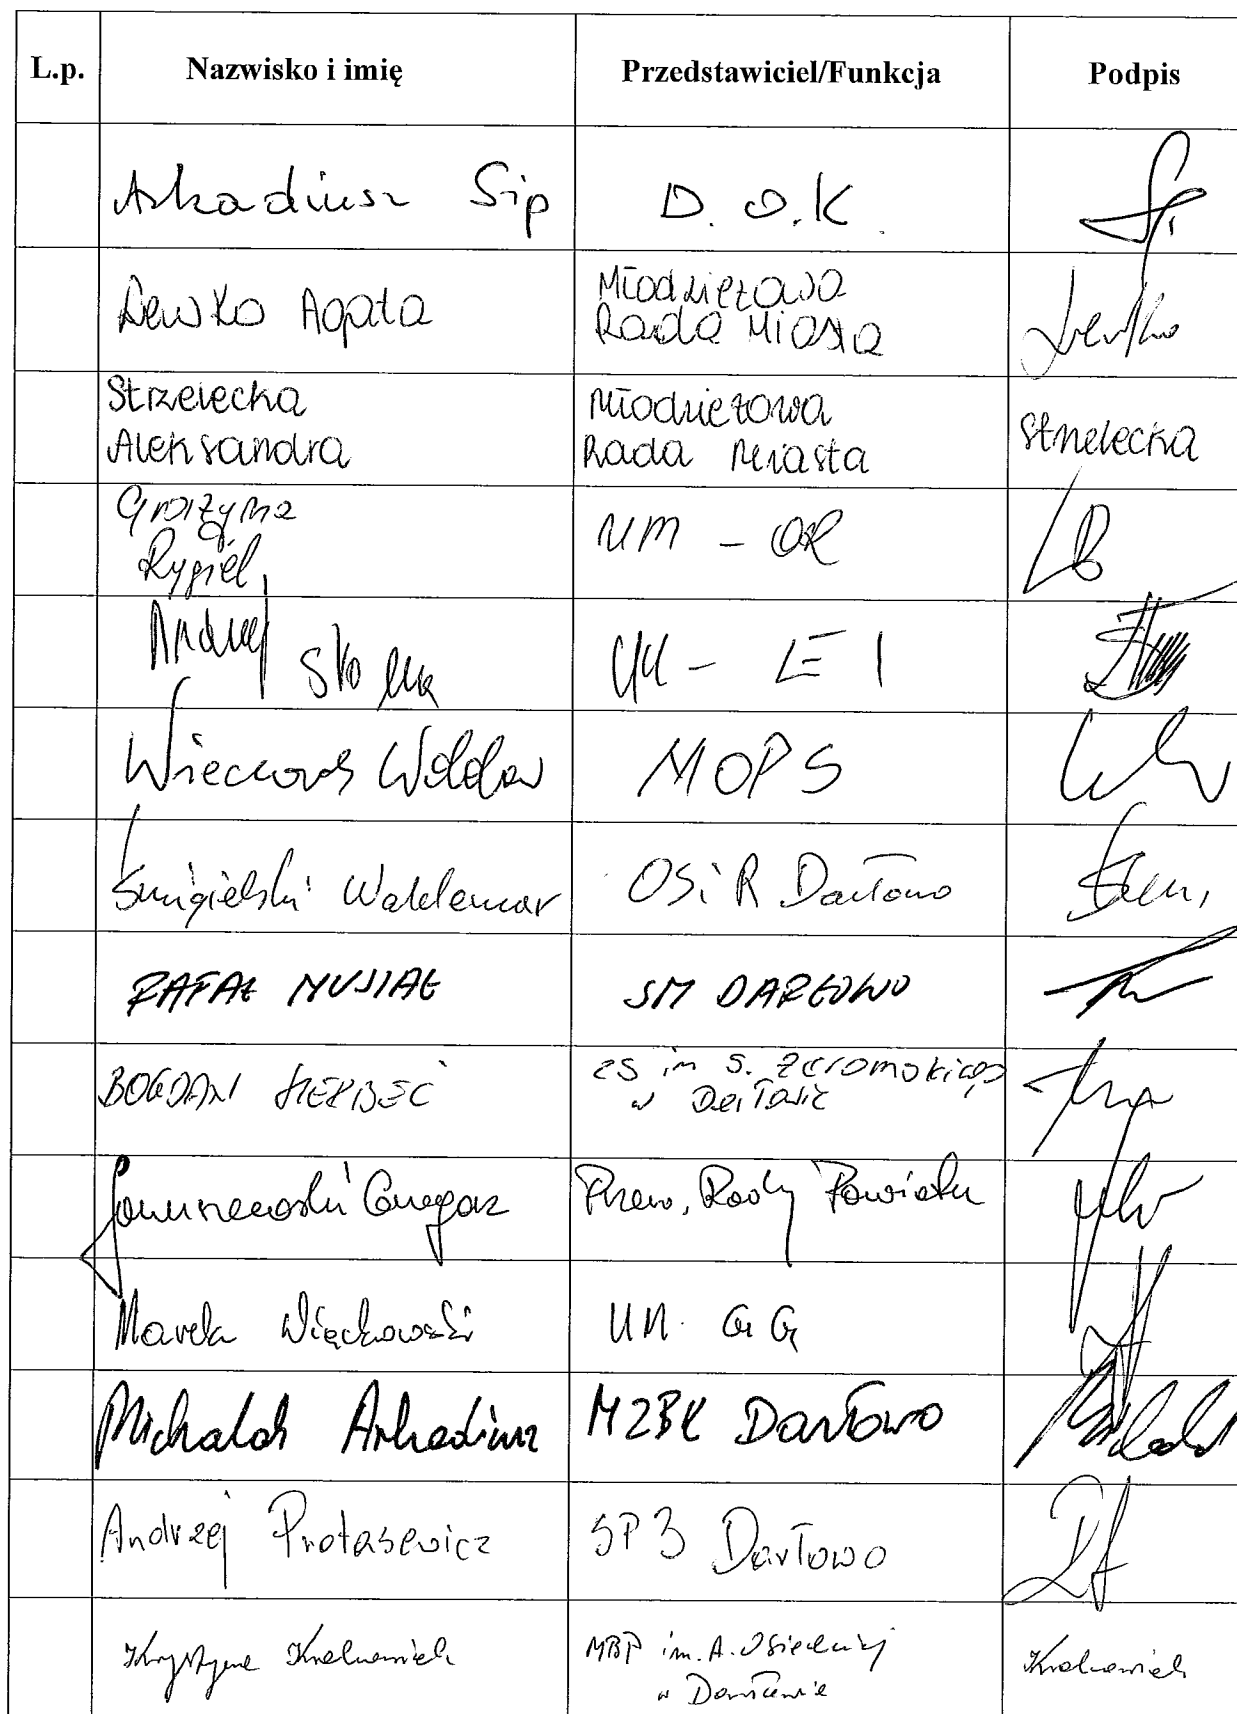 L.p. Nazwisko i imię Przedstawiciel/Funkcja Podpis
Arkadiusz Sip D. O. K.
Lewko Agata Młodzieżowa Rada Miasta Lewko
Strzelecka Aleksandra Młodzieżowa Rada Miasta Strzelecka
Grażyna Rygiel UM - OR
Andrzej UM - LE I
Wieckowsk MOPS
Śmigielski Waldemar OSiR Darłowo
RAFAŁ MUSIAŁ SM DARŁOWO
BOGDAN ZS im S. Żeromskiego w Darłowie
Januszewski Grzegorz Przew. Rady Powiatu
Marek Więckowski UM. GG
Michalak Arkadiusz MZBK Darłowo Michalak
Andrzej Protasewicz SP 3 Darłowo
Krystyna MBP im. A. Osieckiej w Darłowie